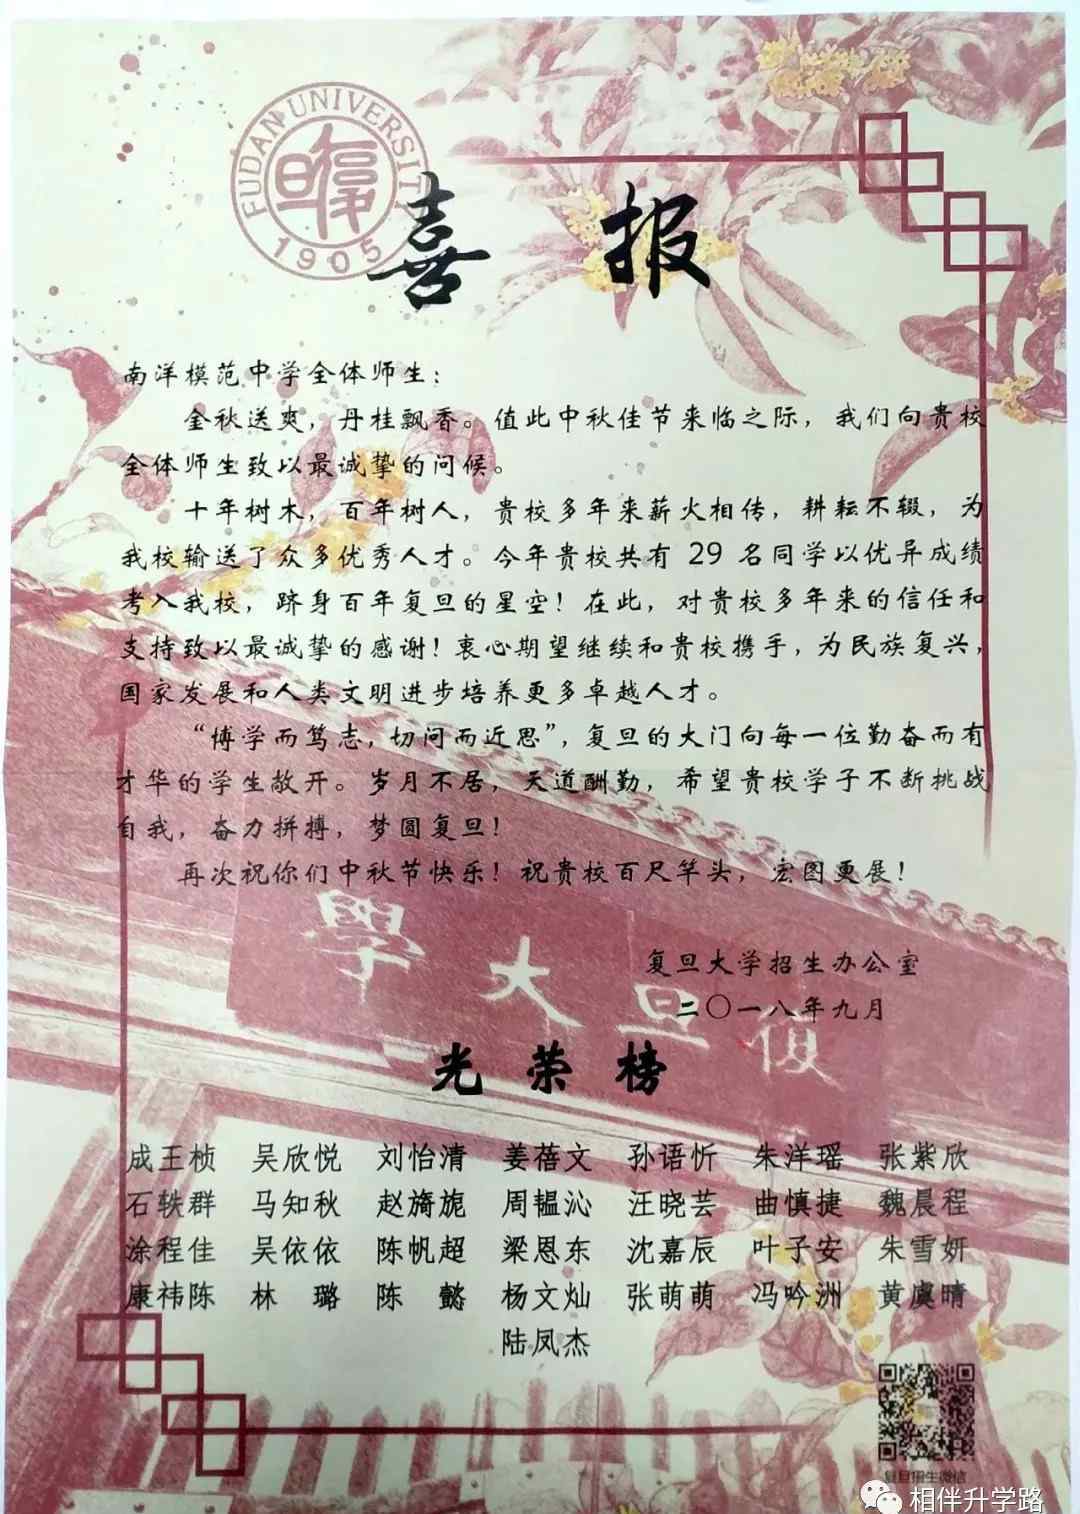 FUDAN UNIVERSITY
1905
喜报
南洋模范中学全体师生：
金秋送爽，丹桂飘香。值此中秋佳节来临之际，我们向贵校
全体师生致以最诚挚的问候。
十年树木，百年树人，贵校多年来薪火相传，耕耘不辍，为
我校输送了众多优秀人才。今年贵校共有 29 名同学以优异成绩
考入我校，跻身百年复旦的星空！在此，对贵校多年来的信任和
支持致以最诚挚的感谢！衷心期望继续和贵校携手，为民族复兴，
国家发展和人类文明进步培养更多卓越人才。
“博学而笃志，切问而近思”，复旦的大门向每一位勤奋而有
才华的学生敞开。岁月不居，天道酬勤，希望贵校学子不断挑战
自我，奋力拼搏，梦圆复旦！
再次祝你们中秋节快乐！祝贵校百尺竿头，宏图更展！
學大旦復
复旦大学招生办公室
二〇一八年九月
光荣榜
成王桢 吴欣悦 刘怡清 姜蓓文 孙语忻 朱洋瑶 张紫欣
石轶群 马知秋 赵旖旎 周韫沁 汪晓芸 曲慎捷 魏晨程
涂程佳 吴依依 陈帆超 梁恩东 沈嘉辰 叶子安 朱雪妍
康祎陈 林璐 陈懿 杨文灿 张萌萌 冯吟洲 黄虞晴
陆凤杰
复旦招生微信
相伴升学路